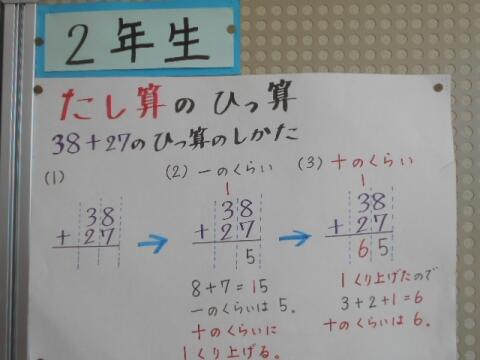 2年生
たし算のひっ算
38+27のひっ算のしかた
(1)
38
+27
(2)一のくらい
1
38
+27
5
8+7=15
一のくらいは5。
十のくらいに
1くり上げる。
(3)十のくらい
1
38
+27
65
1くり上げたので
3+2+1=6
十のくらいは6。